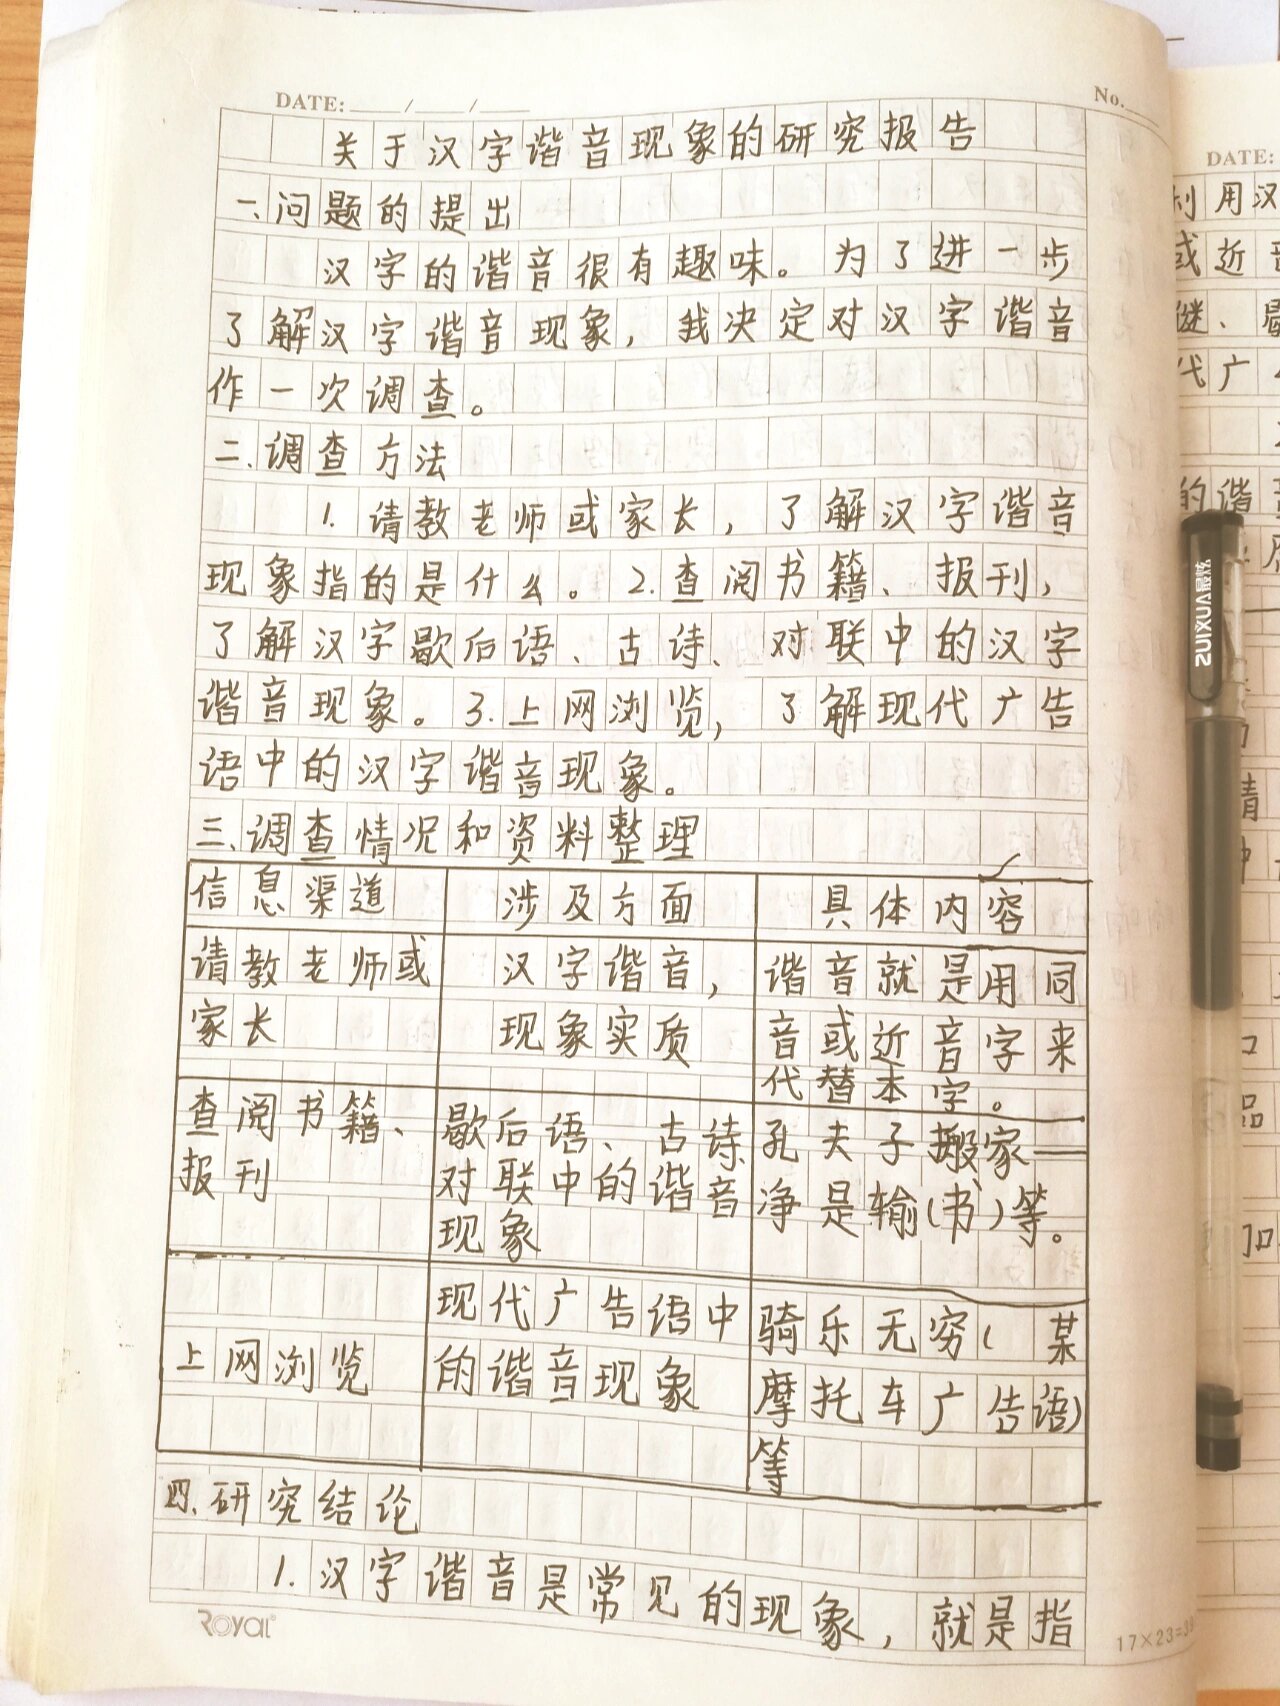 DATE: / /
No.
关于汉字谐音现象的研究报告
一、问题的提出
汉字的谐音很有趣味。为了进一步
了解汉字谐音现象，我决定对汉字谐音
作一次调查。
二、调查方法
1.请教老师或家长，了解汉字谐音
现象指的是什么。2.查阅书籍、报刊，
了解汉字歇后语、古诗、对联中的汉字
谐音现象。3.上网浏览，了解现代广告
语中的汉字谐音现象。
三、调查情况和资料整理
信息渠道 涉及方面 具体内容
请教老师或
家长
汉字谐音，
现象实质
谐音就是用同
音或近音字来
代替本字。
查阅书籍、
报刊
歇后语、古诗、
对联中的谐音
现象
孔夫子搬家——
净是输(书)等。
上网浏览
现代广告语中
的谐音现象
骑乐无穷(某
摩托车广告语)
等
四、研究结论
1.汉字谐音是常见的现象，就是指
Royal
DATE:
利用汉
或近
代广
的谐
情
品
加
ZUIXUA最炫